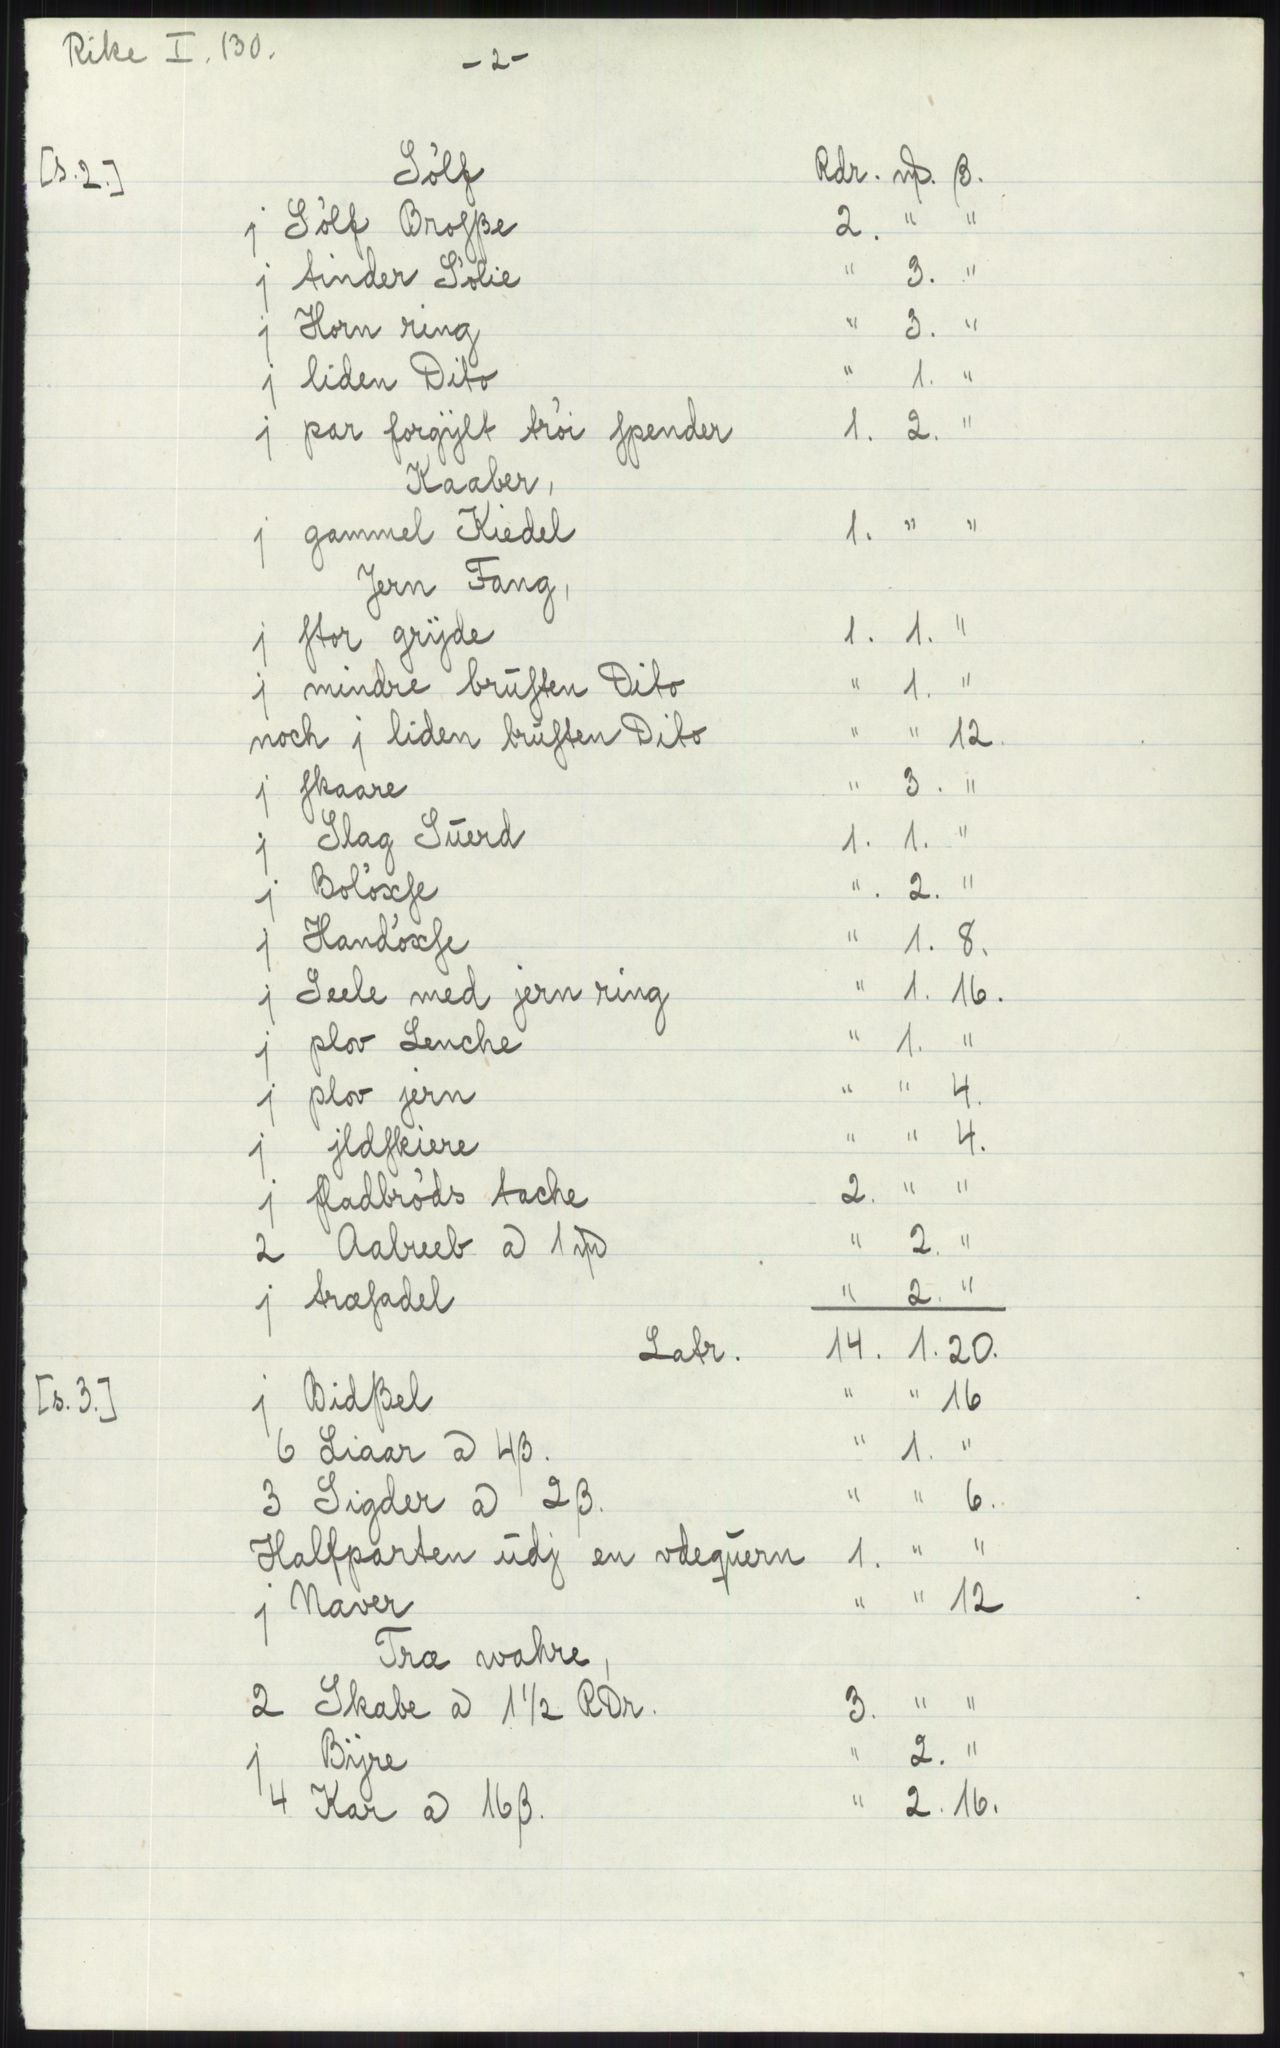 Rike I. 130.
- 2 -
[s. 2.] Sölf Rdr. mp. β.
j Sölf Brosße 2. " "
j tinder Sölie " 3. "
j Horn ring " 3. "
j liden Dito " 1. "
j par forgÿlt tröi spender 1. 2. "
Kaaber,
j gammel Kiedel 1. " "
Jern Fang,
j stor grÿde 1. 1. "
j mindre brūsten Dito " 1. "
noch j liden brūsten Dito " " 12.
j skaare " 3. "
j Slag Sūerd 1. 1. "
j Bolöxse ". 2. "
j Handöxse " 1. 8.
j Seele med jern ring " 1. 16.
j plov Lenche " 1. "
j plov jern " " 4.
j jldskiere " " 4.
j fladbröds tache 2. " "
2 Aabreeb a 1 mp " 2. "
j træsadel " 2. "
Latr. 14. 1. 20.
[s. 3.] j Bidßel " " 16
6 Liaar a 4β. " 1. "
3 Sigder a 2β. " " 6.
Halfparten ūdj en vdeqūern 1. " "
j Naver " " 12
Træ wahre,
2 Skabe a 1 1/2 RDr. 3. " "
j Bÿre " 2. "
4 Kar a 16β. " 2. 16.